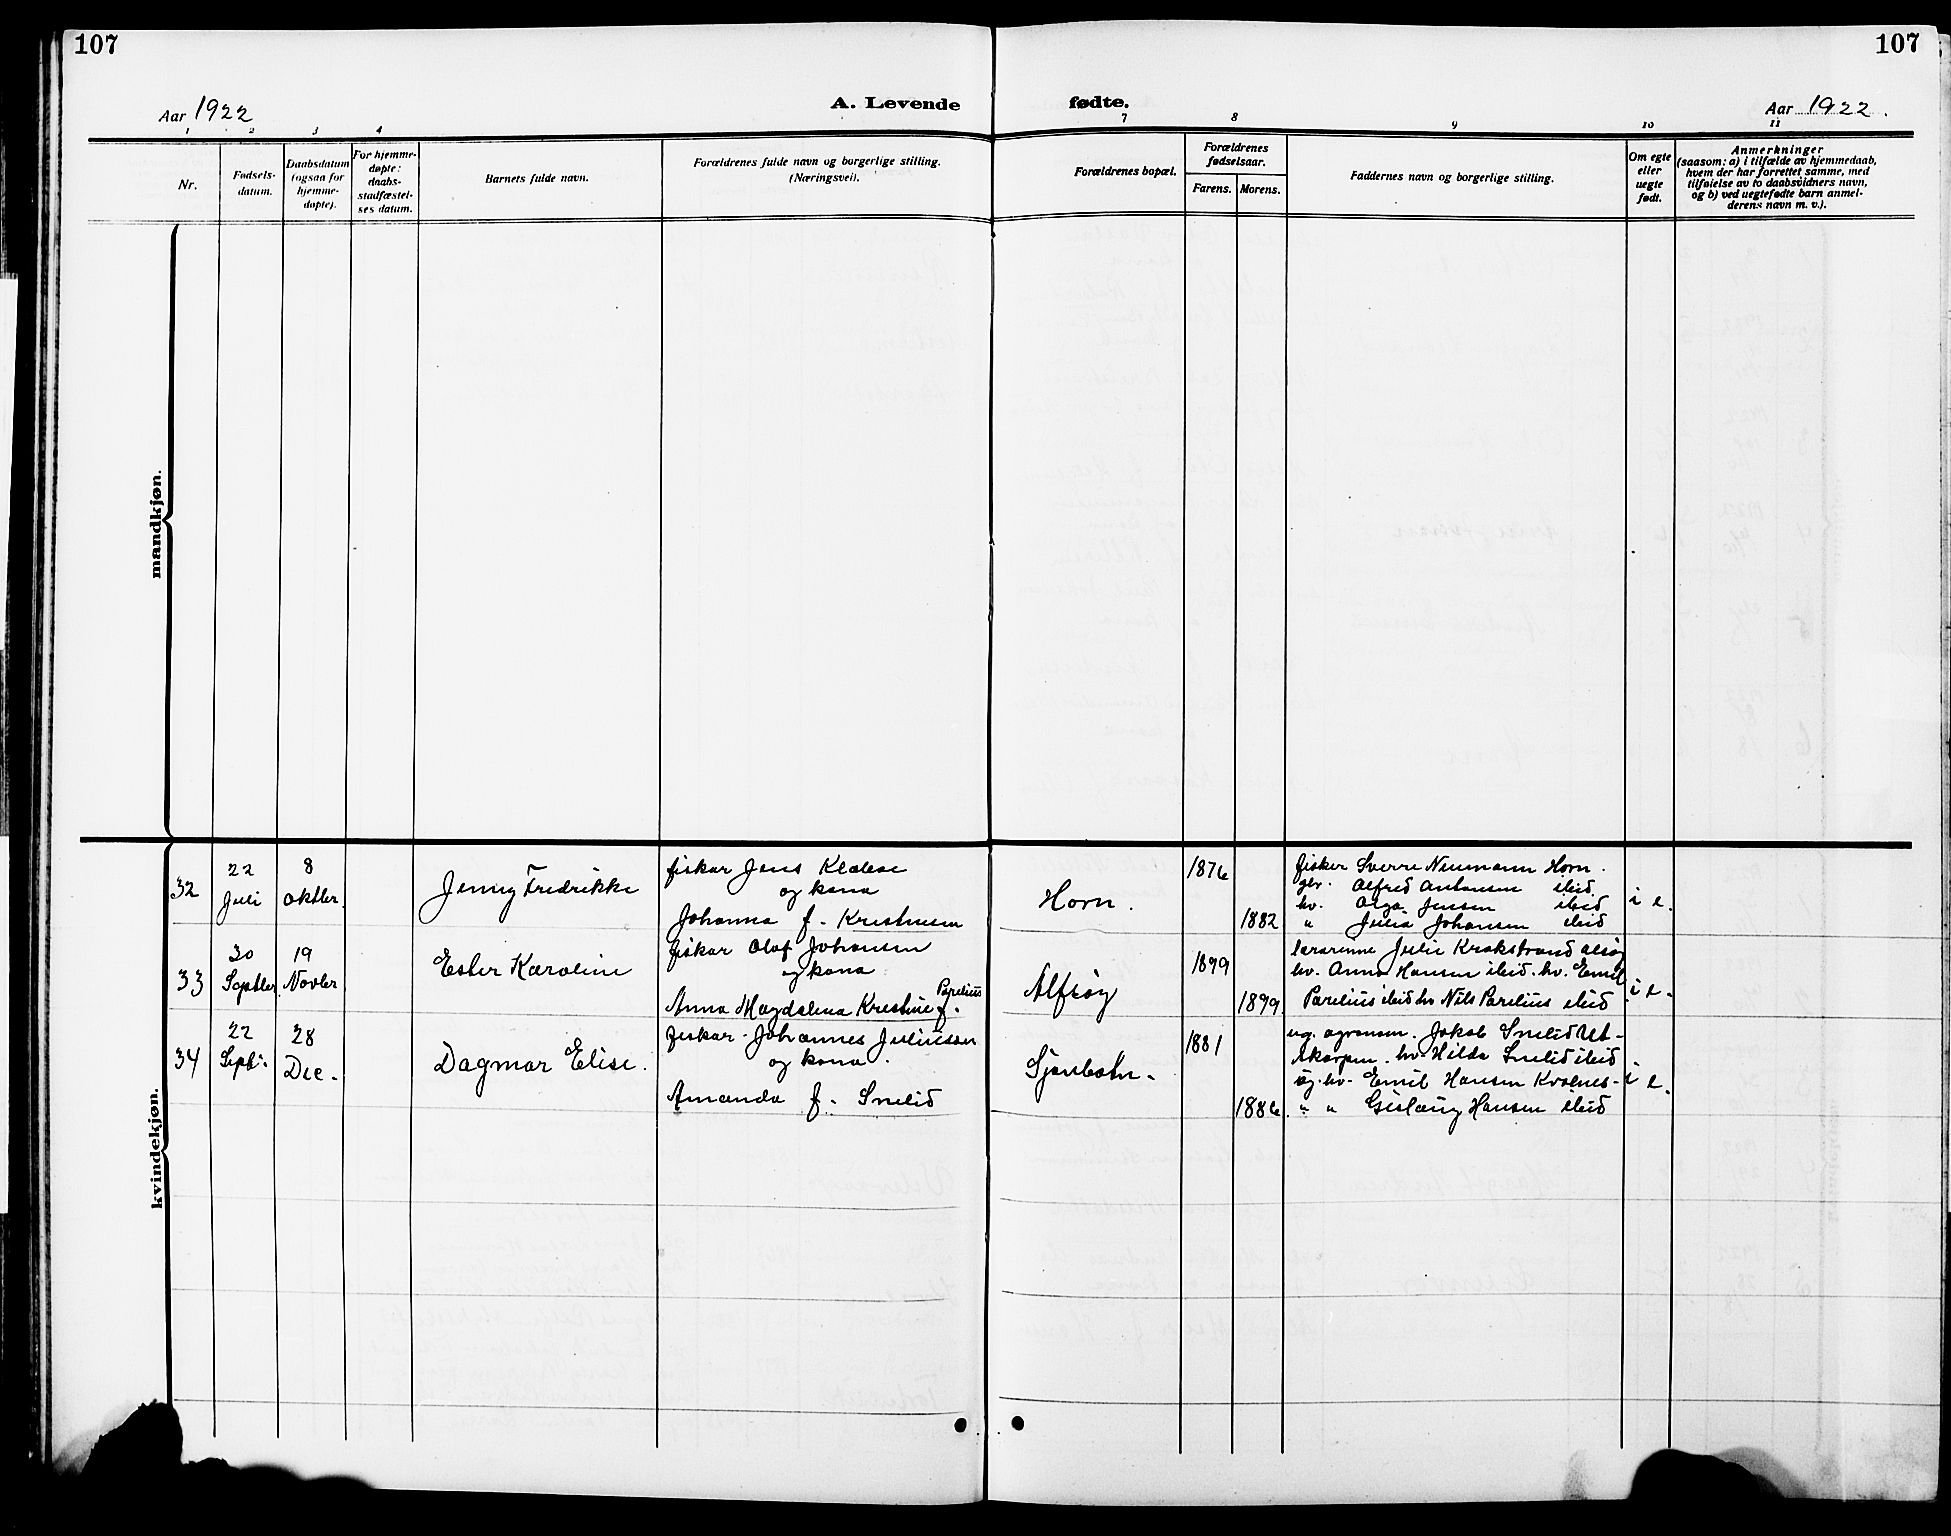 107
107
Aar 1922
A. Levende
fødte.
Aar 1922.
1 2 3 4
7 8 9 10 11
Nr.
Fødsels-
datum.
Daabsdatum
(ogsaa for
hjemme-
døpte).
For hjemme-
døpte:
daabs-
stadfæstel-
ses datum.
Barnets fulde navn.
Forældrenes fulde navn og borgerlige stilling.
(Næringsvei).
Forældrenes bopæl.
Forældrenes
fødselsaar.
Farens. Morens.
Faddernes navn og borgerlige stilling.
Om egte
eller
uegte
født.
Anmerkninger
(saasom: a) i tilfælde av hjemmedaab,
hvem der har forrettet samme, med
tilføielse av to daabsvidners navn,
og b) ved uegtefødte barn anmel-
derens navn m. v.).
mandkjøn.
kvindekjøn.
32
22
Juli
8
oktber
Jenny Fredrikke
fiskar Jens Klæboe
og kona
Johanna f. Kristensen
Horn.
1876
1882
fisker Sverre Neumann Horn.
gbr. Alfred Antonsen ibid.
hv. Olga Jensen ibid
" Julia Johansen ibid
i e.
33
30
Septber
19
Novber
Ester Karoline
fiskar Olaf Johansen
og kona
Anna Magdalena Kristine f. Parelius
Alfsøy
1899
1899
lærarinne Julie Krokstrand alsøy
hv. Anna Hansen ibid. hv. Emil
Parelius ibid hv Nils Parelius ibid
i e.
34
22
Sept.
28
Dec.
Dagmar Elise.
fiskar Johannes Juliussen
og kona.
Amanda f. Snelid
Sjønbotn.
1881
1886.
Jakob Snelid Ut-
skarpen. hv. Hilda Snelid ibid
og hv. Emil Hansen Kvalnes
" " Gislaug Hansen ibid
i e.